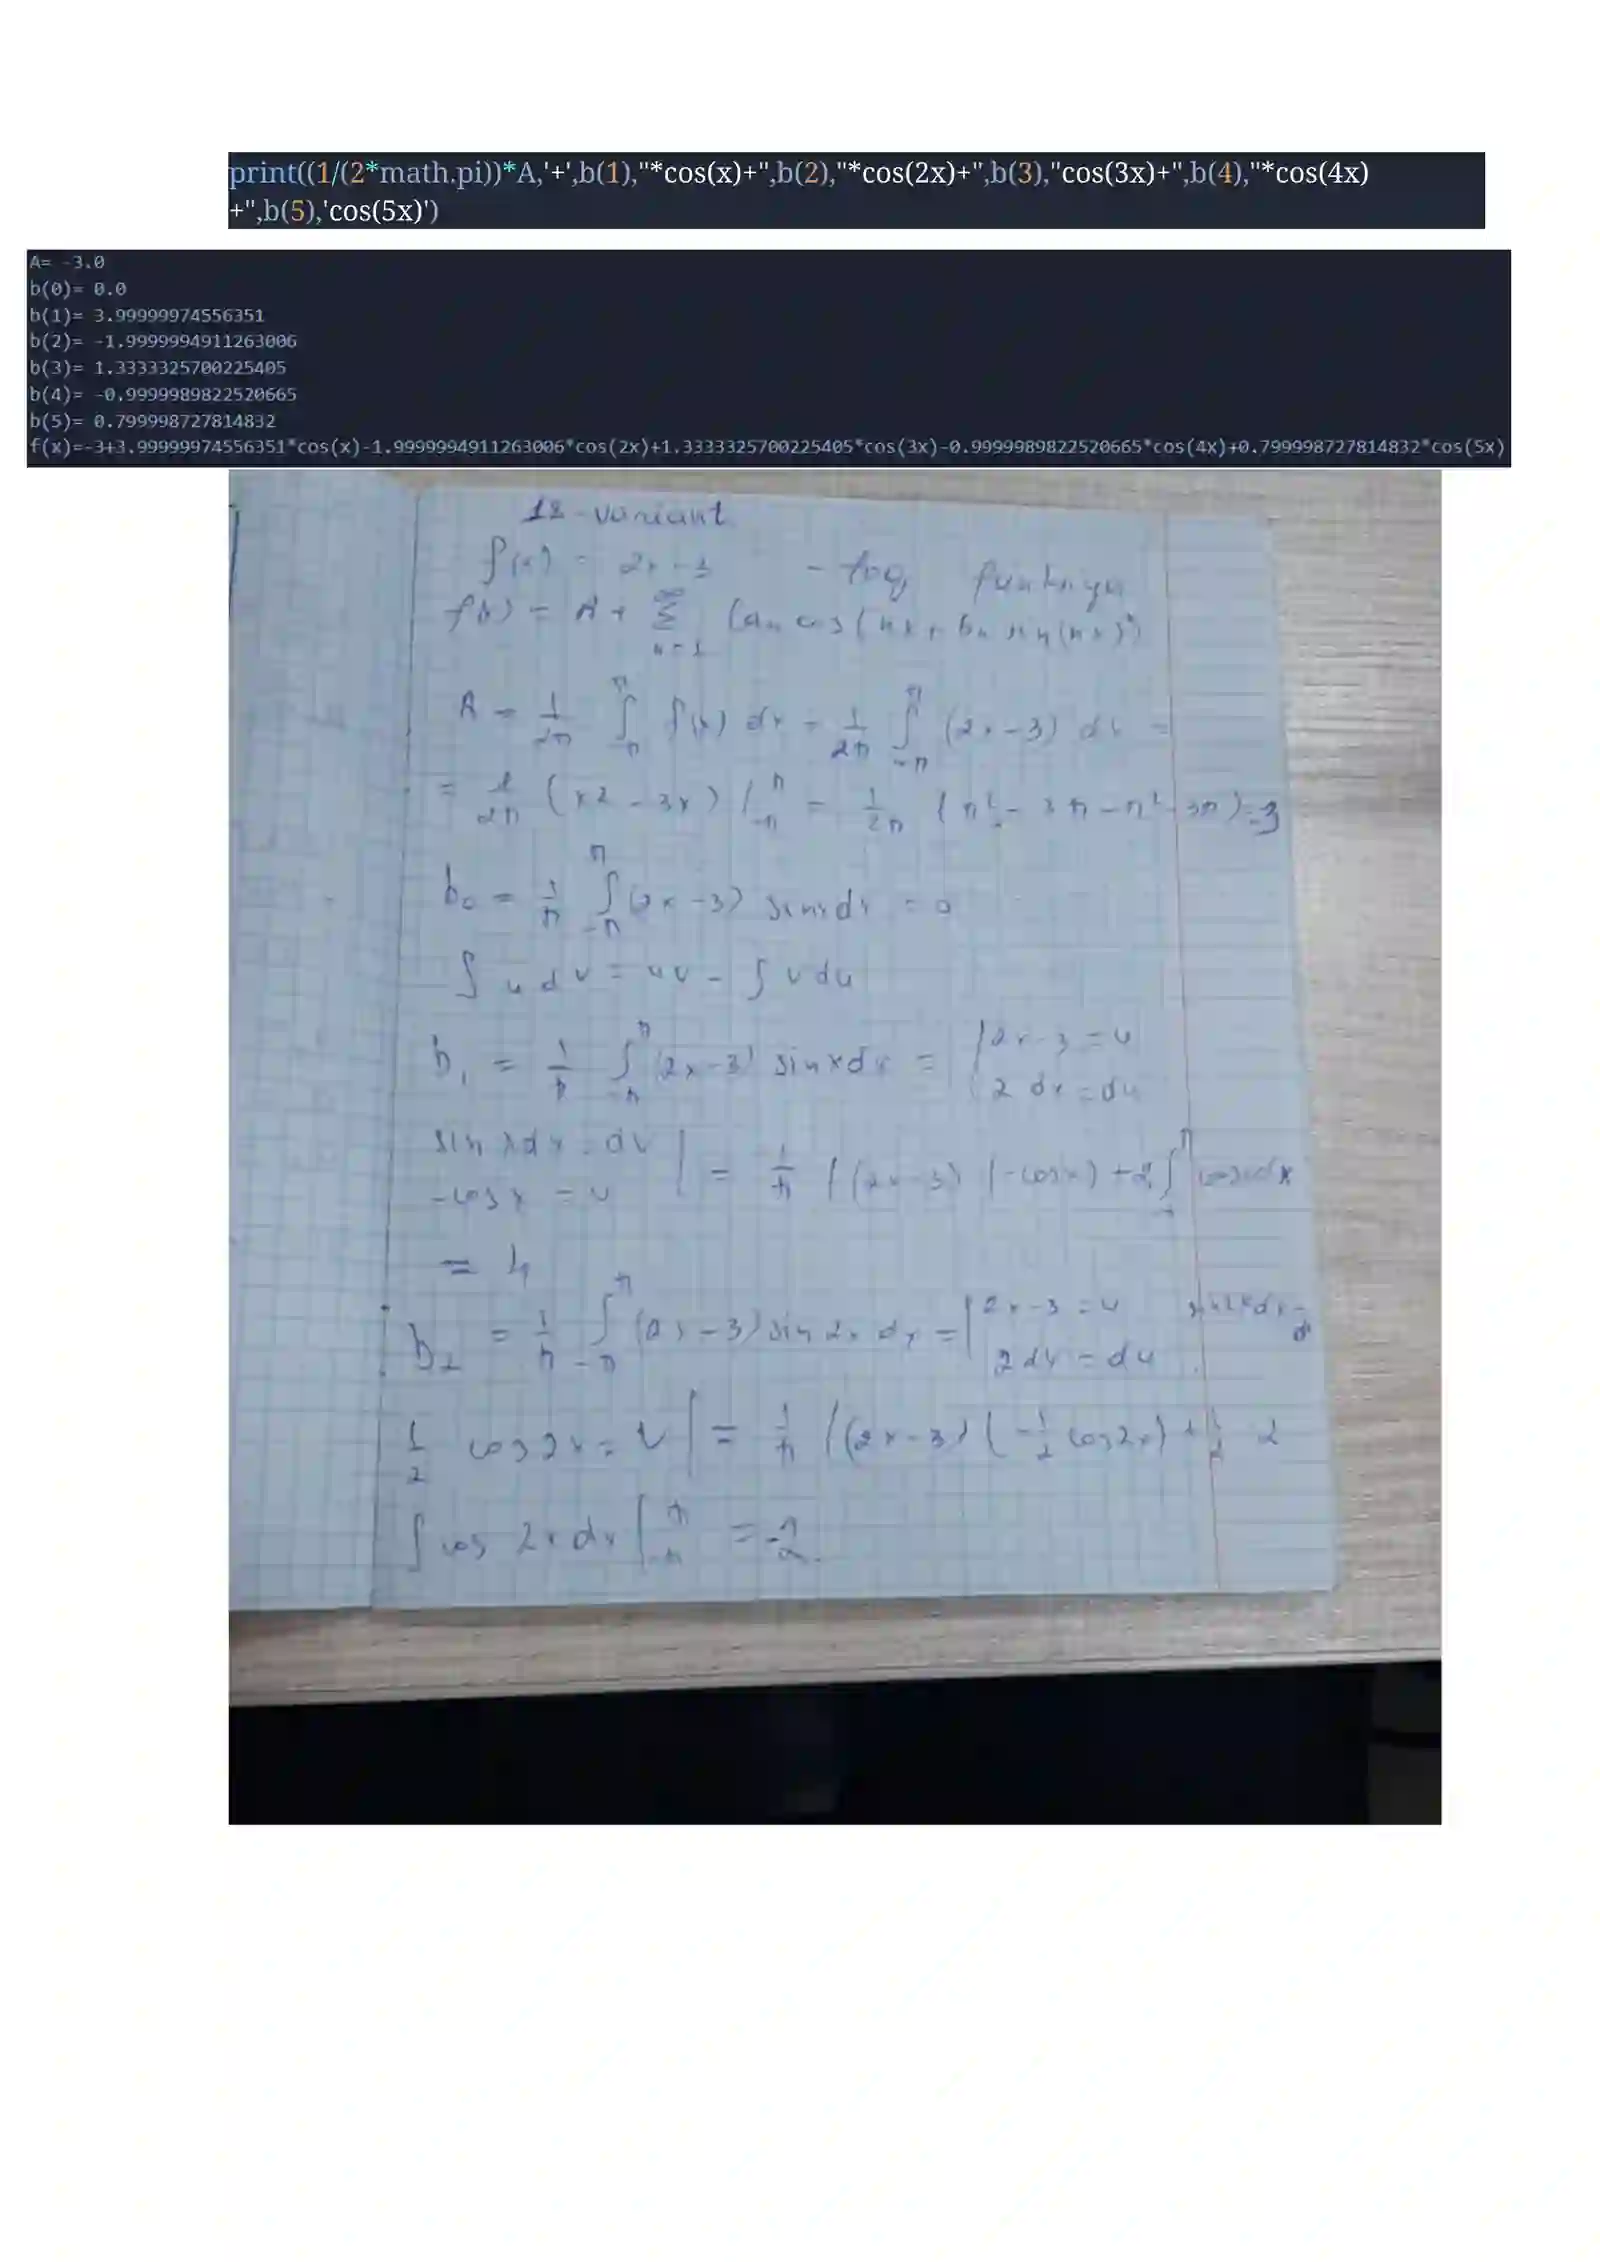 print((1/(2*math.pi))*A,'+',b(1),"*cos(x)+",b(2),"*cos(2x)+",b(3),"cos(3x)+",b(4),"*cos(4x)
+",b(5),'cos(5x)')
A= -3.0
b(0)= 0.0
b(1)= 3.99999974556351
b(2)= -1.9999994911263006
b(3)= 1.3333325700225405
b(4)= -0.9999989822520665
b(5)= 0.799998727814832
f(x)=-3+3.99999974556351*cos(x)-1.9999994911263006*cos(2x)+1.3333325700225405*cos(3x)-0.9999989822520665*cos(4x)+0.799998727814832*cos(5x)
18-variant
f(x) = 2x-3 - toq funksiya
f(x) = A + ∑ n=1 ∞ (an cos(nx + bn sin(nx))
A = 1/2π ∫ -π π f(x) dx = 1/2π ∫ -π π (2x-3) dx =
= 1/2π (x2 - 3x) | -π π = 1/2π (π² - 3π - π² - 3π) = -3
b0 = 1/π ∫ -π π (2x-3) sinxdx = 0
∫ u dv = uv - ∫ v du
b1 = 1/π ∫ -π π (2x-3) sinxdx = | 2x-3 = u
2 dx = du
sin xdx = dv
-cosx = v | = 1/π ((2x-3) (-cosx) + 2 ∫ π cosxdx
= 4
b2 = 1/π ∫ -π π (2x-3) sin 2x dx = | 2x-3 = u sin2xdx =
2dx = du
1/2 cos2x = v | = 1/π ((2x-3) (-1/2 cos2x) + 1/2 2
∫ cos 2x dx | -π π = -2